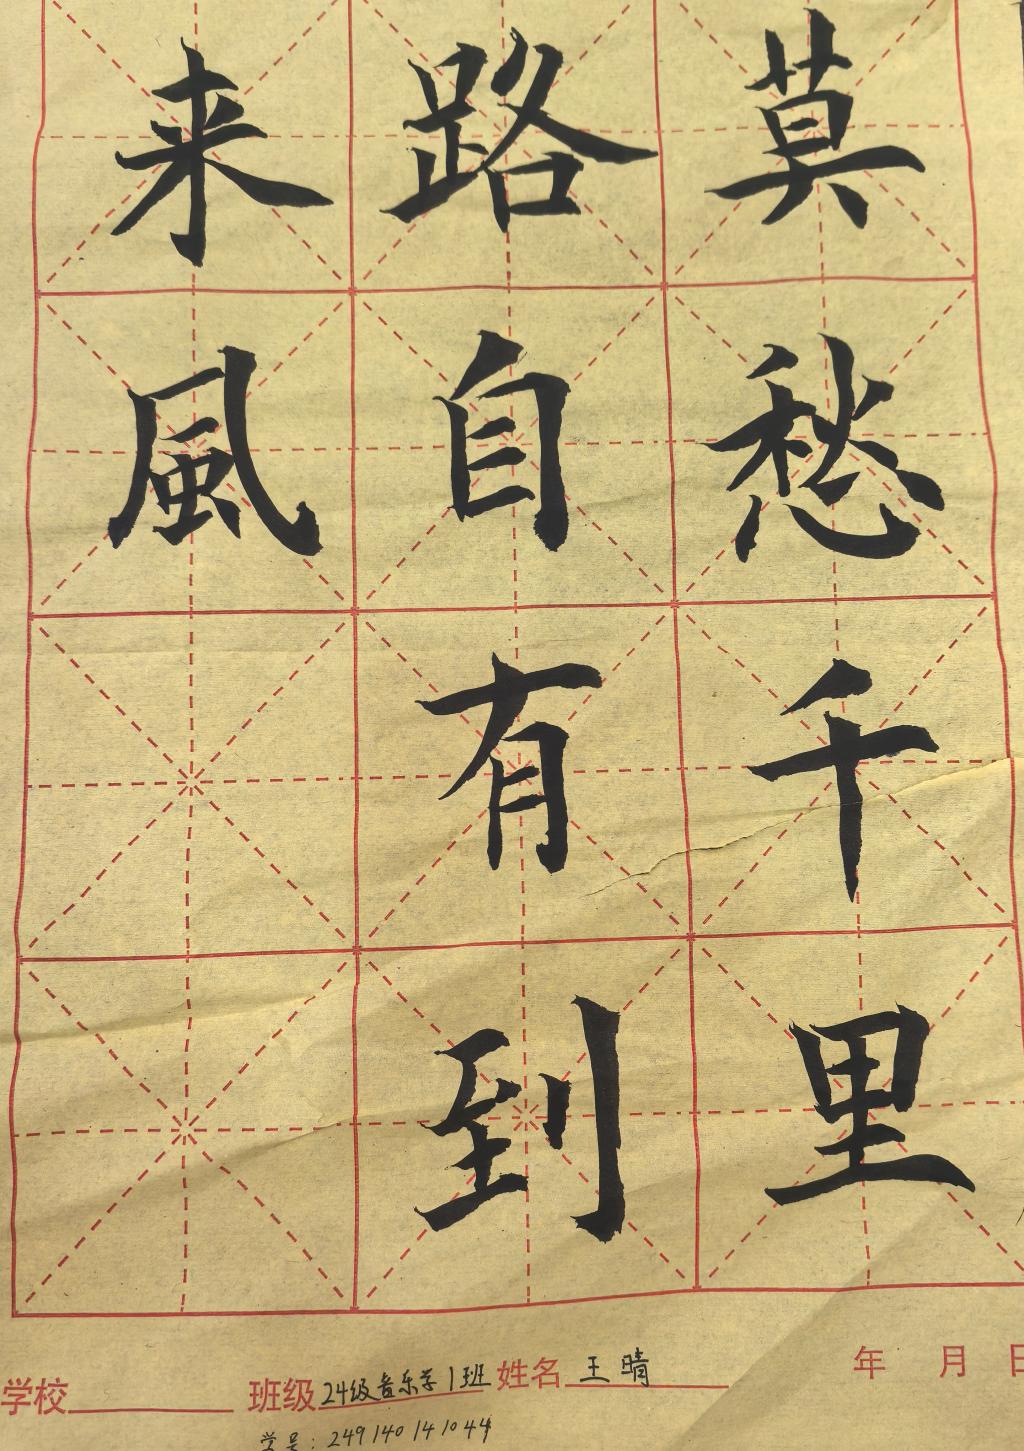 莫愁千里
路自有到
来風
学校 班级 24级音乐学1班 姓名 王晴 年 月 日
学号：249140141044